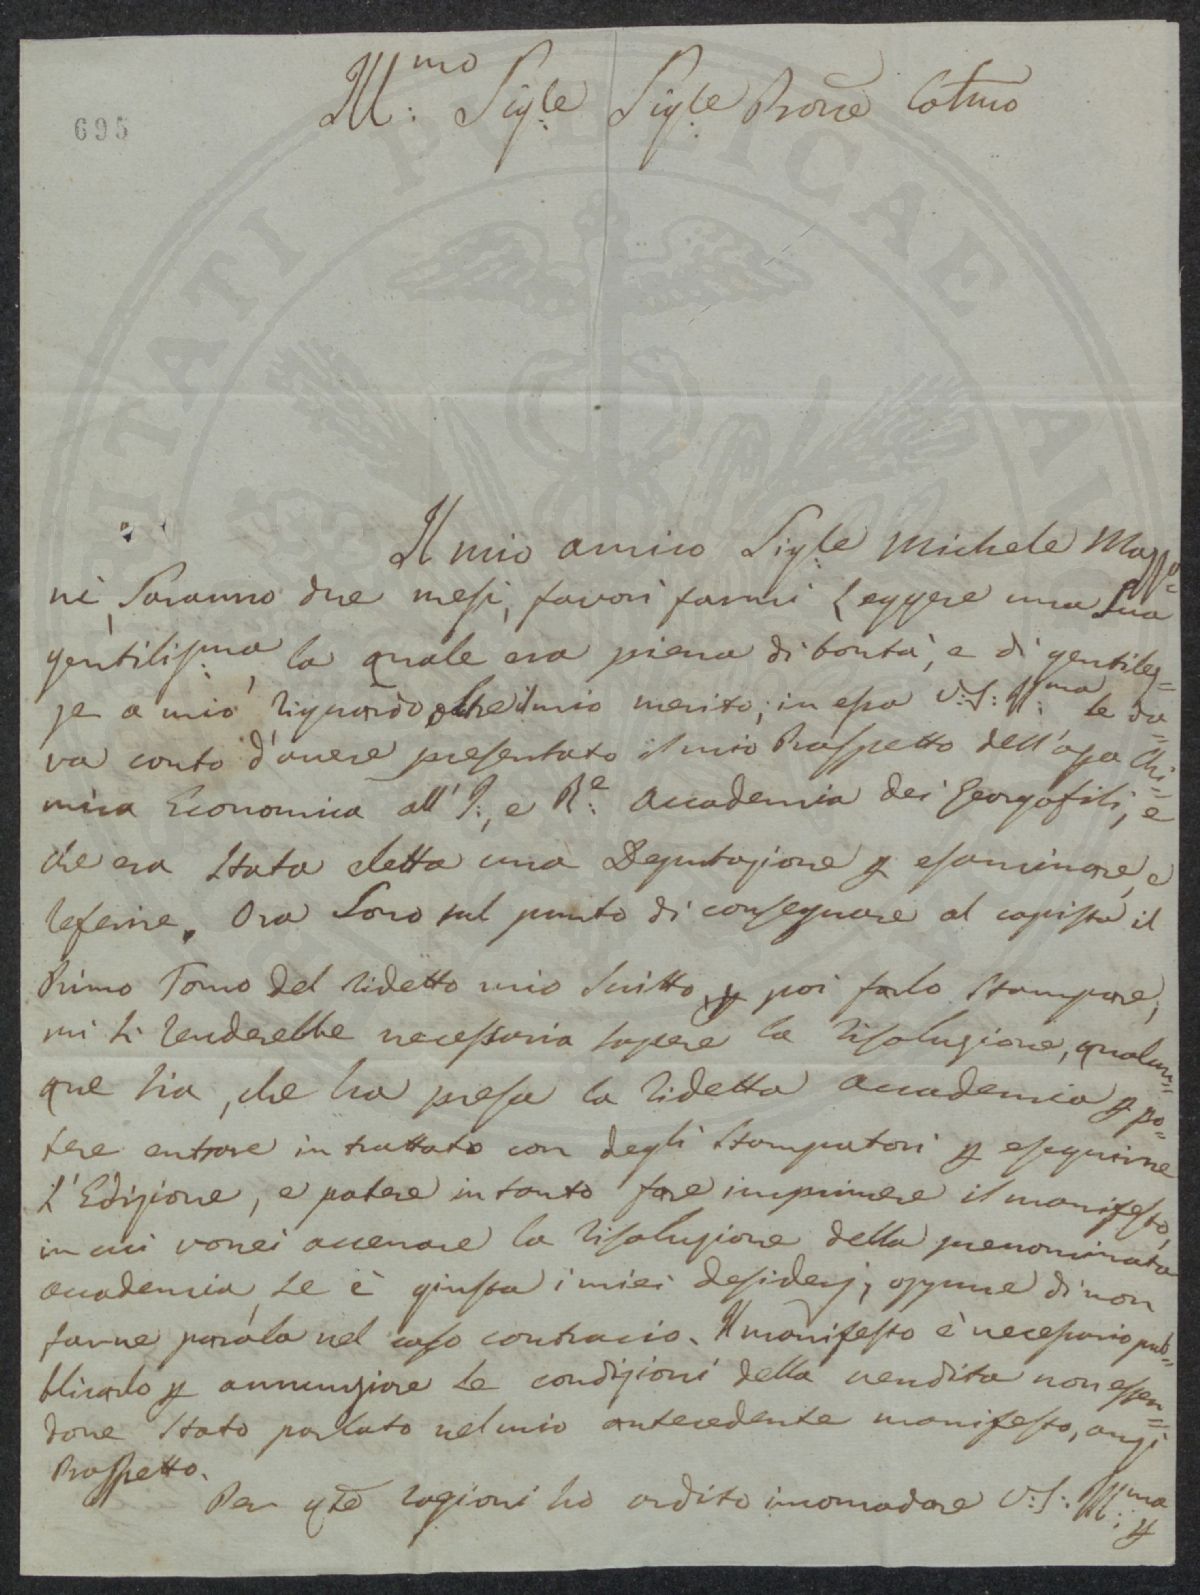 Ill:mo Sig:le Sig:le Prone Colmo
695
Il mio amico Sig:le Michele Mazzo=
ni, saranno due mesi, favorì farmi leggere una sua
gentiliss:ma, la quale era piena di bontà, e di gentilez=
ze a mio riguardo oltre il mio merito; in essa V:S: Ill:ma le da=
va conto d'avere presentato il mio Prospetto dell'opa Chi=
mica Economica all' I:, e R:e Accademia dei Georgofili, e
che era stata eletta una Deputazione p esaminare, e
referire. Ora sono sul punto di consegnare al copista il
Primo Tomo del ridetto mio scritto, p poi farlo stampare;
mi si renderebbe necessaria sapere la risoluzione, qualun=
que sia, che ha presa la ridetta Accademia p po=
tere entrare in trattato con degli stampatori p eseguirne
l'Edizione, e potere intanto fare imprimere il manifesto,
in cui vorrei accenare la risoluzione della prenominata
Accademia, se è giusta i miei desiderj, oppure di non
farne parola nel caso contrario. Il manifesto è necessario pub=
blicarlo p annunziare le condizioni della vendita non essen=
done stato parlato nel mio antecedente manifesto, anzi
Prospetto.
Per qte ragioni ho ardito incomodare V:S: Ill:ma
p
UTILITATI PUBLICAE